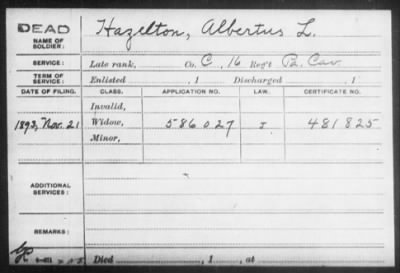 DEAD
NAME OF SOLDIER: Hazelton, Albertus L.
SERVICE: Late rank, Co. C, 16 Reg't Pa. Cav.
TERM OF SERVICE: Enlisted , 1 Discharged , 1
DATE OF FILING. CLASS. APPLICATION NO. LAW. CERTIFICATE NO.
Invalid,
1893, Nov. 21 Widow, 586027 J 481825
Minor,
ADDITIONAL SERVICES:
REMARKS:
Died , 1 , at